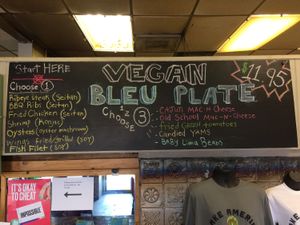 Start HERE
VEGAN
BLEU PLATE
$11.95
Choose 1
Pepper Steak (Seitan)
BBQ Ribs (Seitan)
Fried Chicken (Seitan)
Shrimp
Oysters (oyster mushroom)
Wings Fried/grilled (soy)
Fish Filet (soy)
2
CHOOSE
3
- CAJUN MAC-N-Cheese
- Old School Mac-N-Cheese
- Fried Green tomatoes
- Candied YAMS
- BABY Lima Beans
IT'S OKAY
TO CHEAT
IMPOSSIBLE
AMERICA